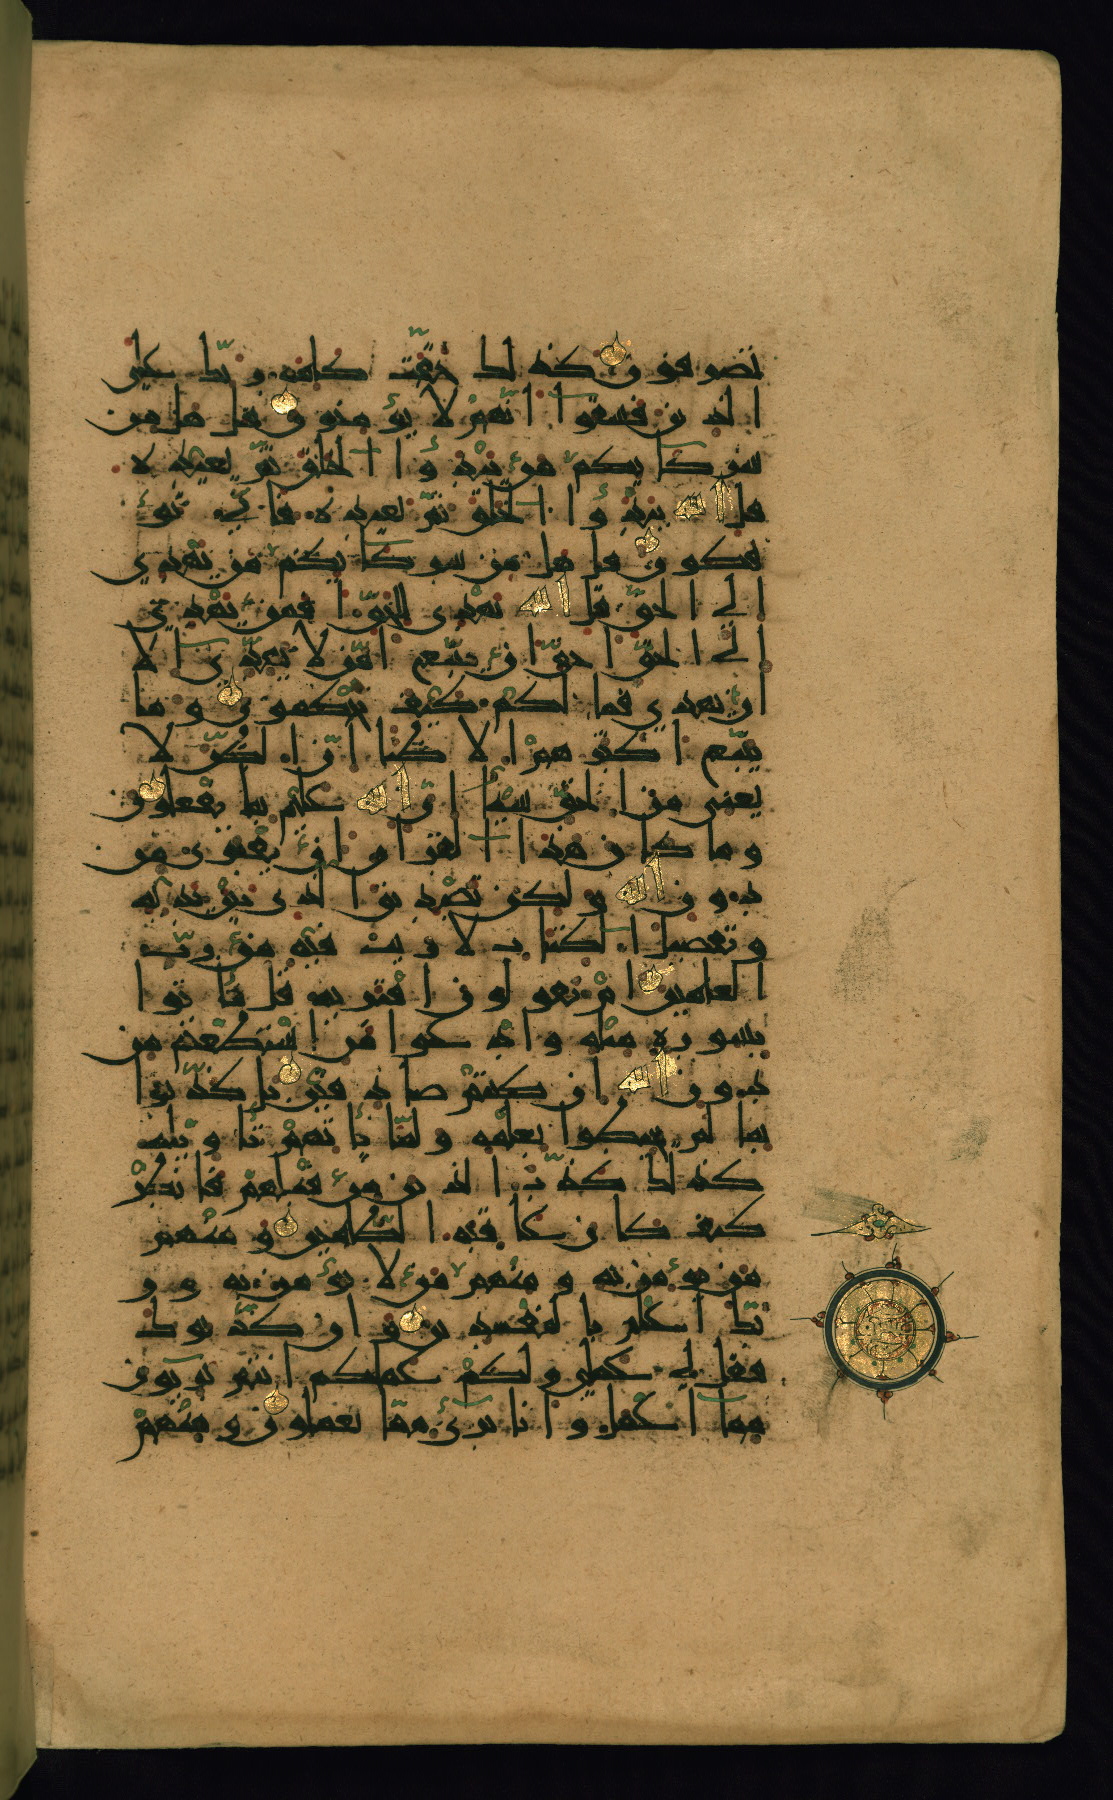 تصرفون كذلك حقت كلمة ربك على
الذين فسقوا انهم لا يؤمنون قل هل من
شركائكم من يبدؤا الخلق ثم يعيده
قل الله يبدؤا الخلق ثم يعيده فانى تؤ
فكون قل هل من شركائكم من يهدي
الى الحق قل الله يهدي للحق افمن يهدي
الى الحق احق ان يتبع امن لا يهدي الا
ان يهدى فما لكم كيف تحكمون وما
يتبع اكثرهم الا ظنا ان الظن لا
يغني من الحق شيئا ان الله عليم بما يفعلون
وما كان هذا القران ان يفترى من
دون الله ولكن تصديق الذي بين يديه
وتفصيل الكتاب لا ريب فيه من رب
العالمين ام يقولون افتريه قل فأتوا
بسورة مثله وادعوا من استطعتم من
دون الله ان كنتم صادقين بل كذبوا
بما لم يحيطوا بعلمه ولما يأتهم تأويله
كذلك كذب الذين من قبلهم فانظر
كيف كان عاقبة الظالمين ومنهم
من يؤمن به ومنهم من لا يؤمن به و ر
بك اعلم بالمفسدين وان كذبوك
فقل لي عملي ولكم عملكم انتم بريؤن
مما اعمل وانا بريء مما تعملون ومنهم